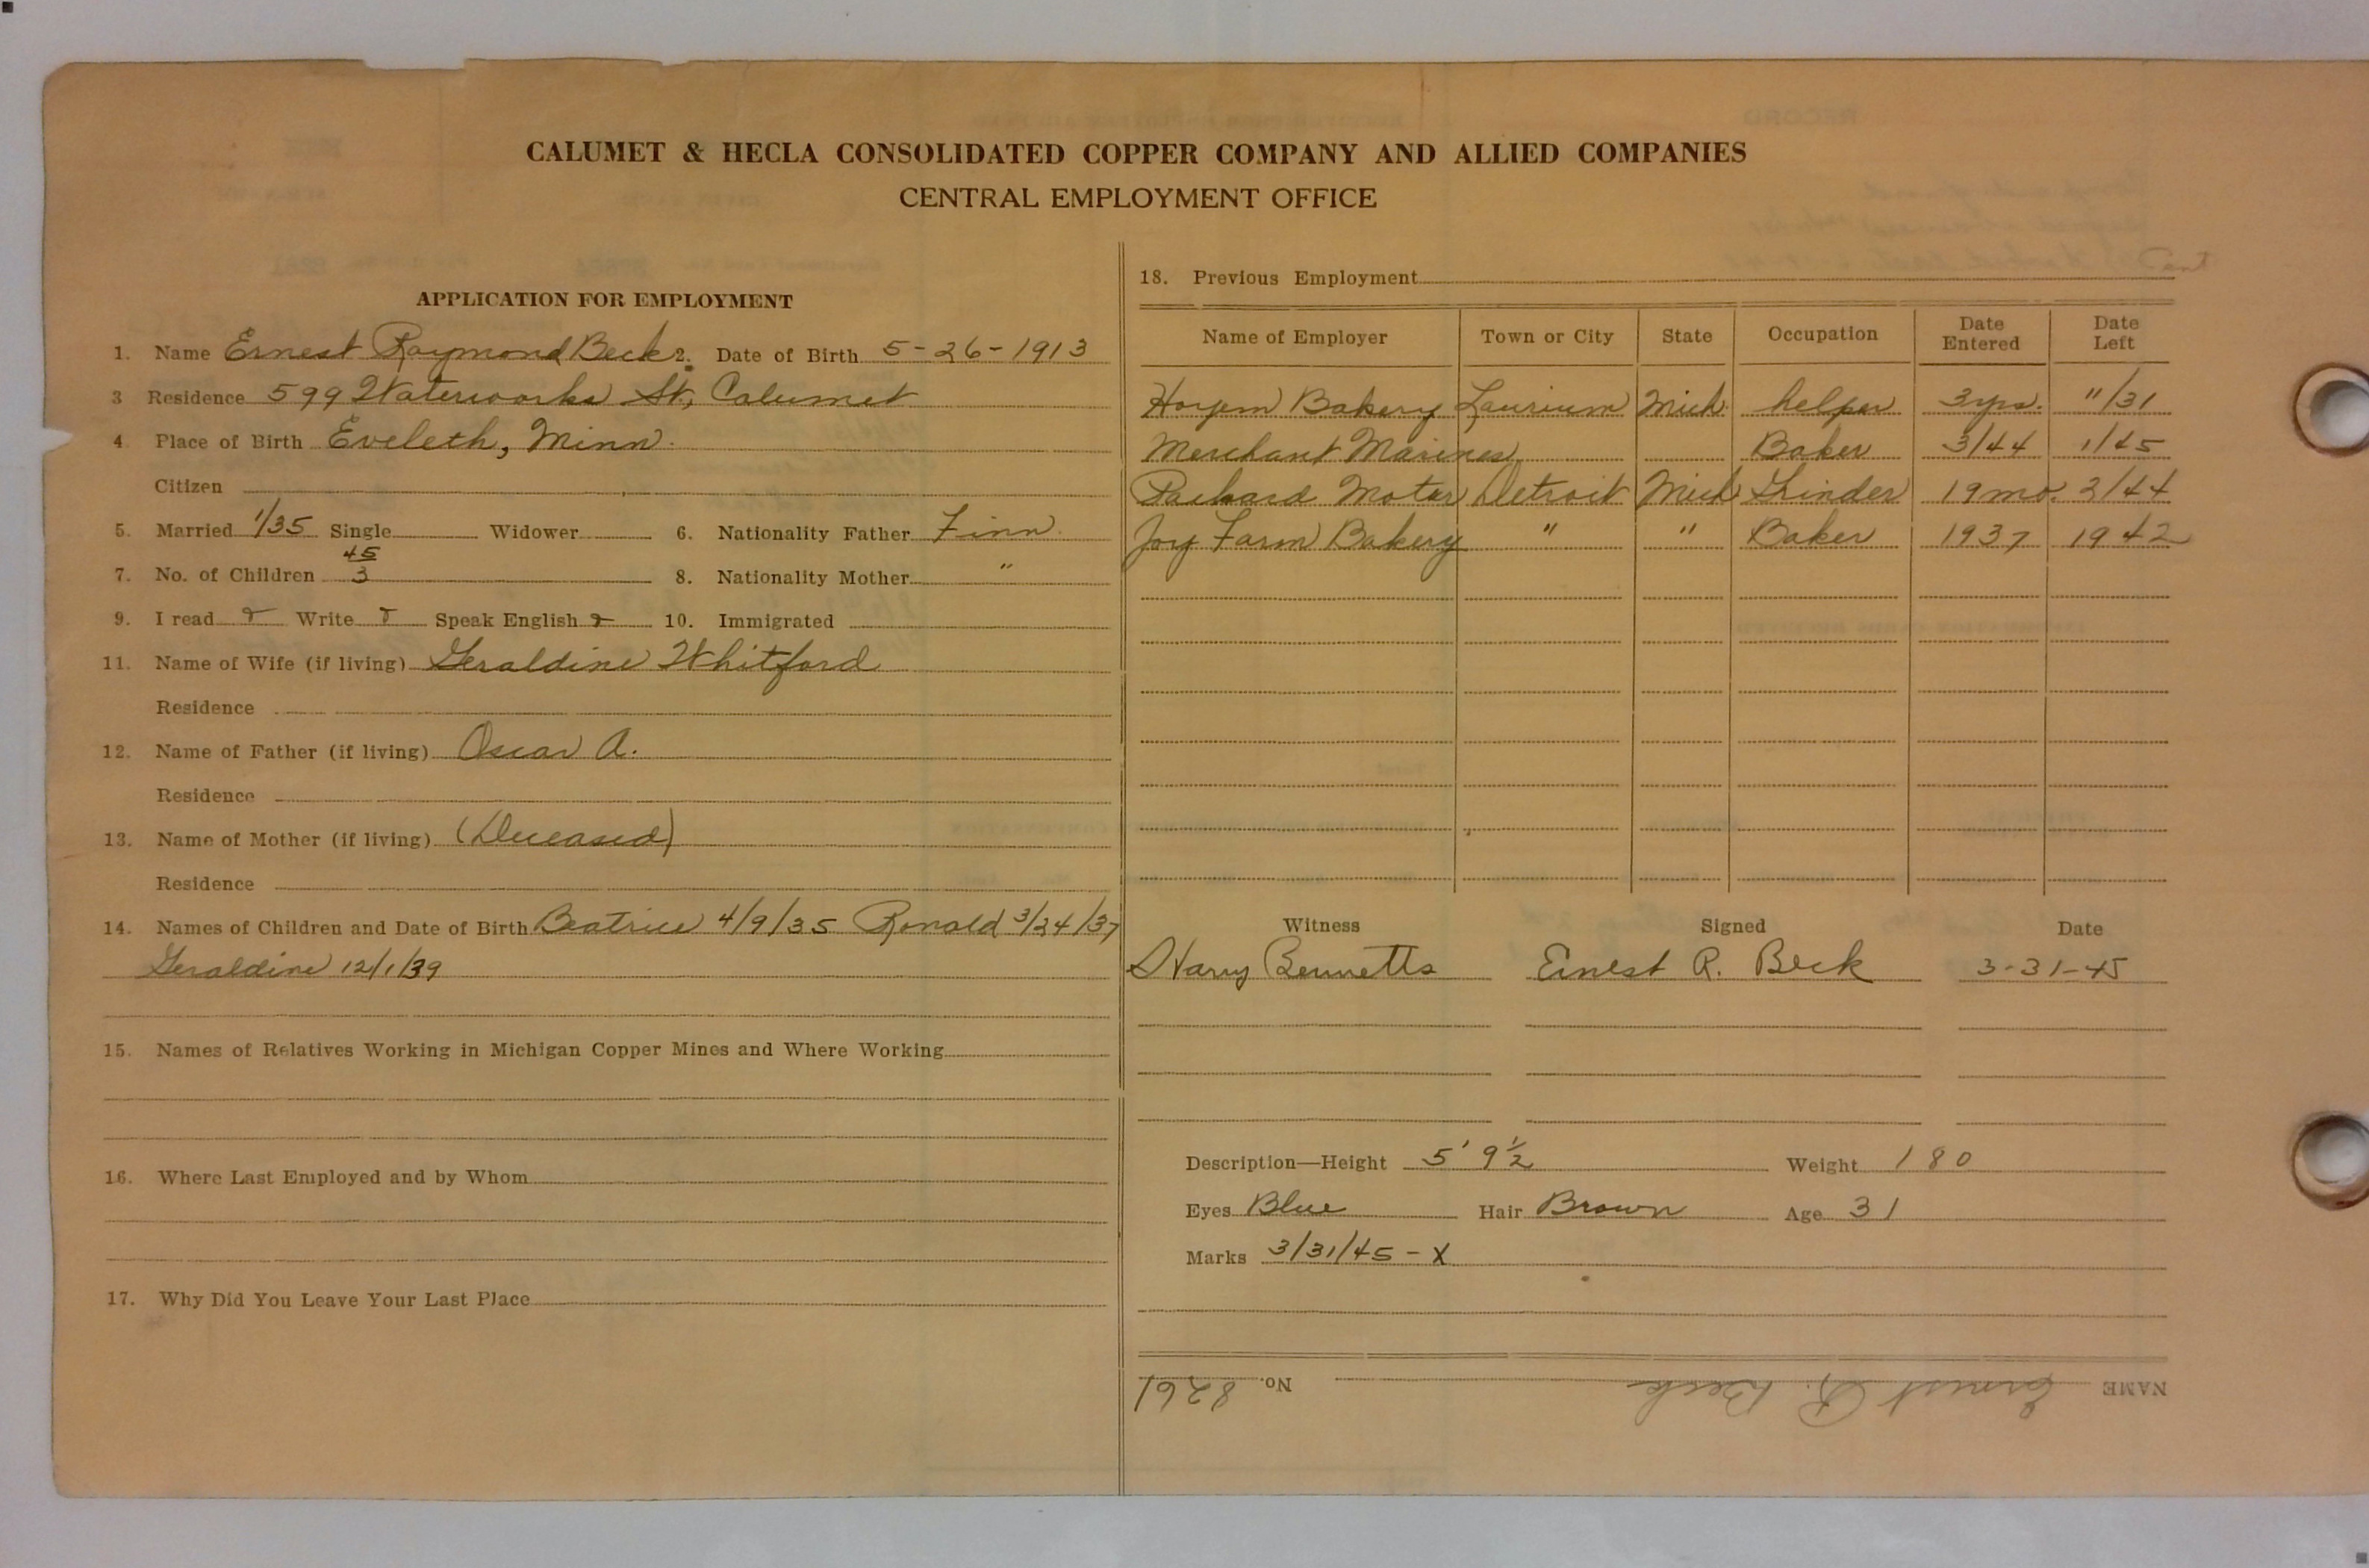 CALUMET & HECLA CONSOLIDATED COPPER COMPANY AND ALLIED COMPANIES
CENTRAL EMPLOYMENT OFFICE
APPLICATION FOR EMPLOYMENT
1. Name Ernest Raymond Beck 2. Date of Birth 5-26-1913
3 Residence 599 Waterworks St, Calumet
4 Place of Birth Eveleth, Minn.
Citizen
5. Married 1/35 Single Widower 6. Nationality Father Finn
45
7. No. of Children 3 8. Nationality Mother "
9. I read Write Speak English 10. Immigrated
11. Name of Wife (if living) Geraldine Whitford
Residence
12. Name of Father (if living) Oscar A.
Residence
13. Name of Mother (if living) (Deceased)
Residence
14. Names of Children and Date of Birth Beatrice 4/9/35 Ronald 3/24/37
Geraldine 12/1/39
15. Names of Relatives Working in Michigan Copper Mines and Where Working
16. Where Last Employed and by Whom
17. Why Did You Leave Your Last Place
18. Previous Employment
Name of Employer Town or City State Occupation Date Entered Date Left
Hoyem Bakery Laurium Mich. helper 3yrs. 11/31
Merchant Marines Baker 3/44 1/45
Packard Motor Detroit Mich Grinder 19 mo. 2/44
Joy Farm Bakery " " Baker 1937 1942
Witness Signed Date
Harry Bennetts Ernest R. Beck 3-31-45
Description—Height 5' 9½ Weight 180
Eyes Blue Hair Brown Age 31
Marks 3/31/45 - X
NAME Ernest R. Beck No. 8261